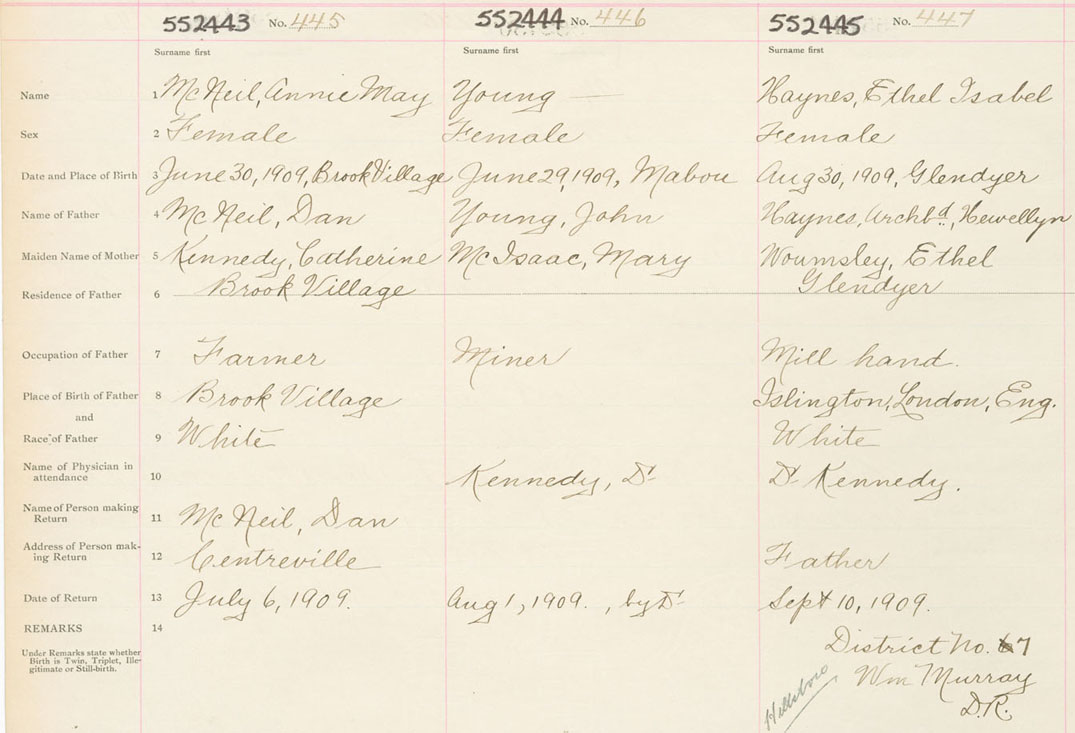 552443 No. 445 552444 No. 446 552445 No. 447
Surname first Surname first Surname first
Name 1 McNeil, Annie May Young — Haynes, Ethel Isabel
Sex 2 Female Female Female
Date and Place of Birth 3 June 30, 1909, Brook Village June 29, 1909, Mabou Aug 30, 1909, Glendyer
Name of Father 4 McNeil, Dan Young, John Haynes, Archbd., Hewellyn
Maiden Name of Mother 5 Kennedy, Catherine McIsaac, Mary Woumsley, Ethel
Residence of Father 6 Brook Village Glendyer
Occupation of Father 7 Farmer Miner Mill hand.
Place of Birth of Father 8 Brook Village Islington, London, Eng.
and
Race of Father 9 White White
Name of Physician in
attendance 10 Kennedy, Dr Dr Kennedy.
Name of Person making
Return 11 McNeil, Dan
Address of Person mak-
ing Return 12 Centreville Father
Date of Return 13 July 6, 1909. Aug 1, 1909. , by Dr Sept 10, 1909.
REMARKS 14
Under Remarks state whether
Birth is Twin, Triplet, Ille-
gitimate or Still-birth.
District No. 7
Wm Murray
D.R.
Hillsboro